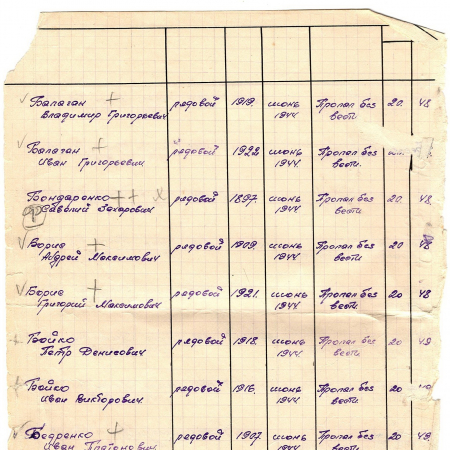 Балаган
Владимир Григорьевич рядовой 1919. июнь 1944 Пропал без вести. 20. 48
Балаган
Иван Григорьевич рядовой 1922 июнь 1944. Пропал без вести.
Бондаренко
Савелий Захарович рядовой 1897. июнь 1944 Пропал без вести. 20. 48.
Борис
Андрей Максимович рядовой 1909. июнь 1944 Пропал без вести. 20
Борис
Григорий Максимович рядовой 1921. июнь 1944 Пропал без вести. 20 48
Бойко
Петр Денисович рядовой 1918. июнь 1944 Пропал без вести. 20 49
Бойко
Иван Викторович. рядовой 1916. июнь 1944. Пропал без вести. 20
Бедренко
Иван Платонович рядовой 1907 июнь 1944 Пропал без вести. 20 49.